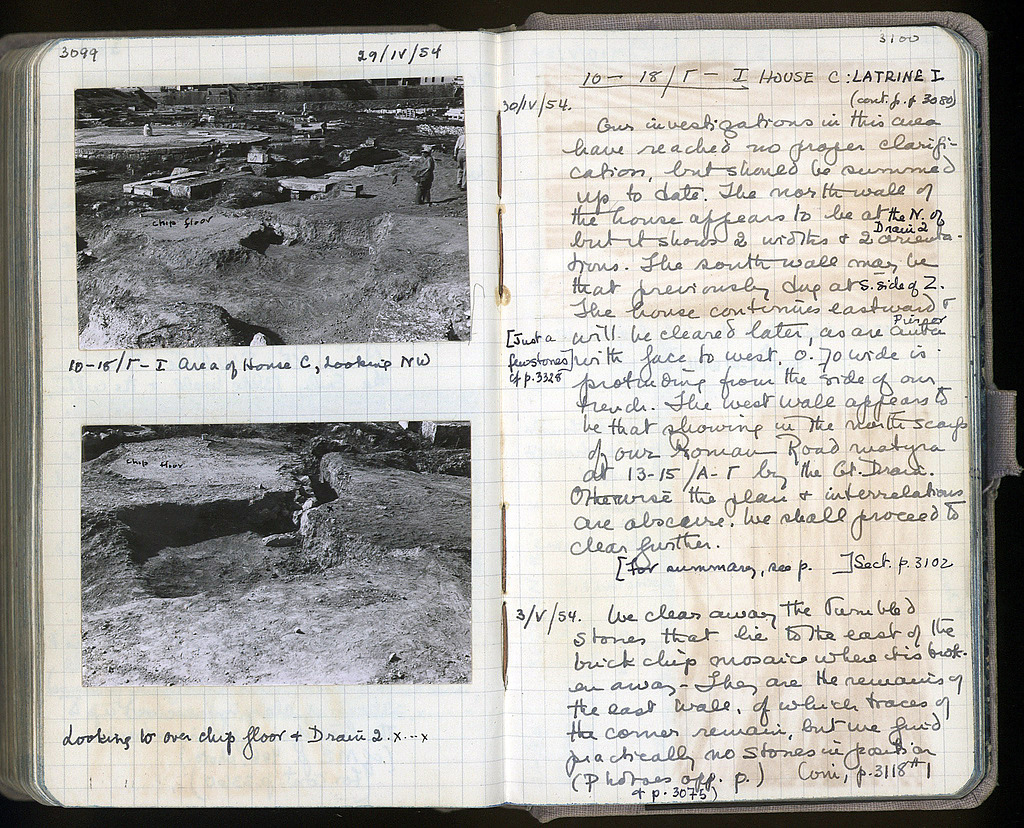 3099
29/IV/54
chip floor
10-18/Γ-I Area of House C, Looking NW
chip floor
Looking W over chip floor + Drain 2. x...x
3100
10-18/Γ-I HOUSE C: LATRINE I
(cont. f. p 3080)
30/IV/54.
Our investigations in this area
have reached no proper clarifi-
cation, but should be summed
up to date. The north wall of
the house appears to be at the N. of
Drain 2
but it shows 2 widths + 2 orienta-
tions. The south wall may be
that previously dug at S. side of Z.
The house continues eastward +
will be cleared later, as are
Pier or
[Just a
few stones]
cf p. 3328
with face to west, 0.70 wide is
protruding from the side of our
trench. The west wall appears to
be that showing in the north scarp
of our Roman Road
at 13-15/A-Γ by the Gt. Drain.
Otherwise the plan + interrelations
are obscure. We shall proceed to
clear further.
[For summary, see p. ] Sect. p. 3102
3/V/54. We clear away the tumbled
stones that lie to the east of the
brick chip mosaic where it is brok-
en away. They are the remains of
the east wall, of which traces of
the corner remain, but we find
practically no stones in position
(Photoes opp. p.) Con., p. 3118
+ p. 3075)